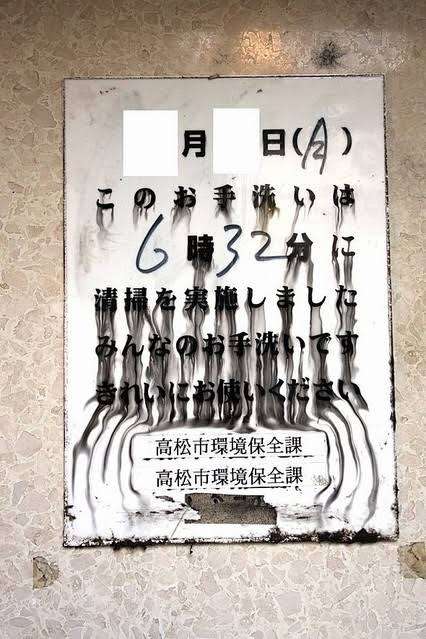 月 日(月)
このお手洗いは
6時32分に
清掃を実施しました
みんなのお手洗いです
きれいにお使いください
高松市環境保全課
高松市環境保全課